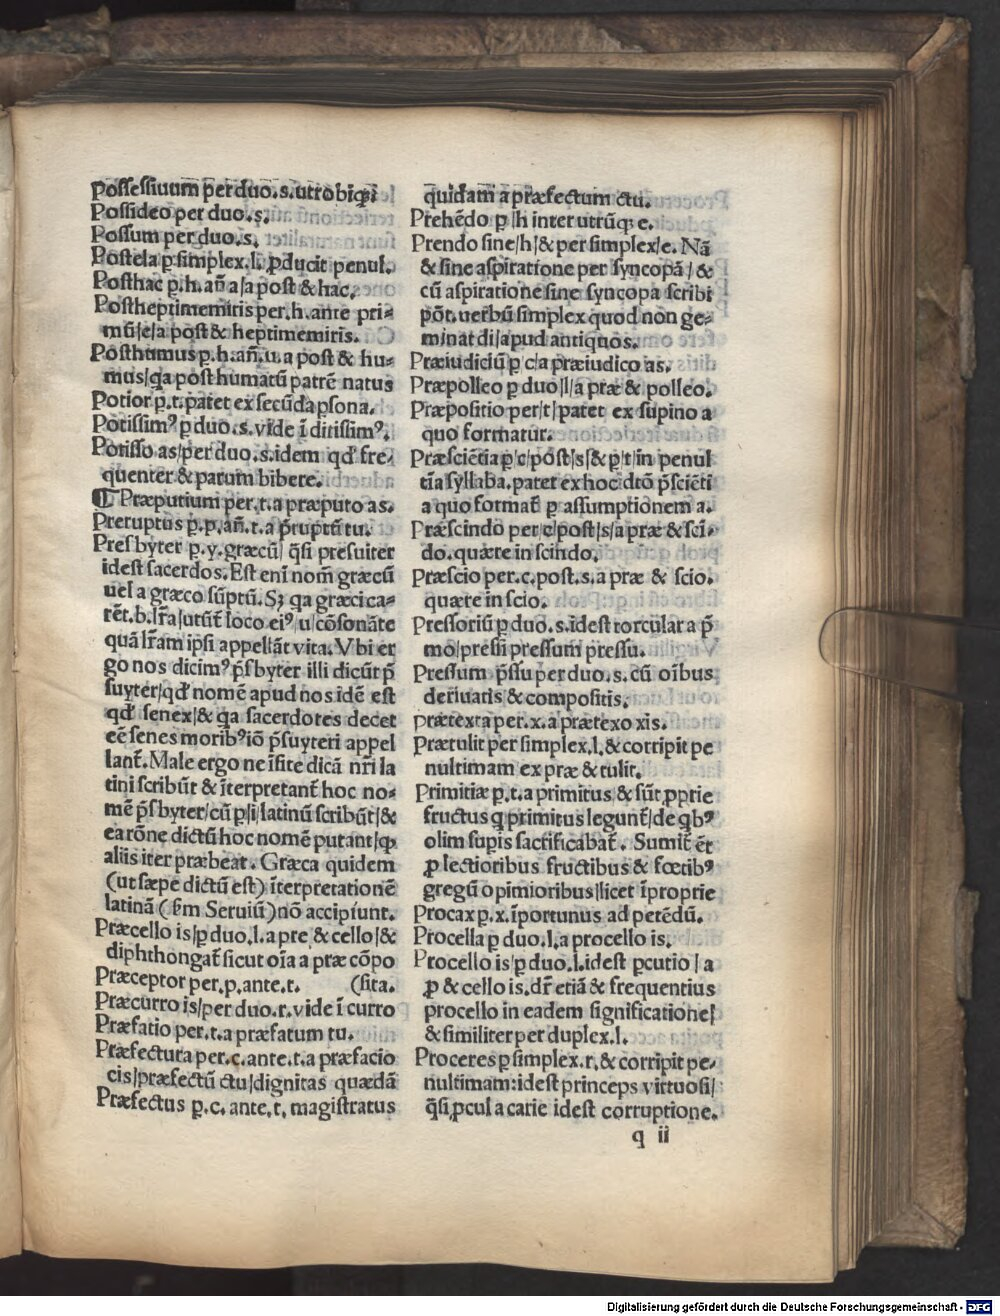 Possessiuum per duo.s.utrobiqꝫ
Possideo per duo.s.
Possum per duo.s.
Postela ꝑ simplex.l. ꝓducit penul.
Posthac ꝑ.h.añ a/a post & hac.
Postheptimemiris per.h.ante pri⸗
mū/e/a post & heptimemiris.
Posthumus ꝑ.h.añ.u.a post & hu⸗
mus/qa post humatū patrē natus
Potior ꝑ.t.patet ex secūda ꝑsona.
Potissimꝰ ꝑ duo.s.vide ī ditissimꝰ.
Potisso as/per duo.s.idem qď fre⸗
quenter & parum bibere.
¶ Præputium per.t.a præputo as.
Preruptus ꝑ.p.añ.t.a p̄ruptū tu.
Presbyter ꝑ.y.græcū/ q̄si presuiter
idest sacerdos.Est enī nom̄ græcū
uel a græco sūptū.Sꝫ qa græci ca⸗
rēt.b.lr̄a/utūt̄ loco eiꝰ/u/cōsonāte
quā lr̄am ipsi appellāt vita.Vbi er
go nos dicimꝰ p̄sbyter illi dicūt p̄
suyter/qď nomē apud nos idē est
qď senex/& qa sacerdotes decet
eē senes moribꝰ iō p̄suyteri appel
lant̄.Male ergo ne īsite dicā nr̄i la
tini scribūt & īterpretant̄ hoc no⸗
mē p̄sbyter/cū ꝑ/i/latinū scribūt/&
ea rōne dictū hoc nomē putant/ꝙ
aliis iter præbeat. Græca quidem
(ut sæpe dictū est) īterpretationē
latinā (ẜm Seruiū)nō accipiunt.
Præcello is/ꝑ duo.l.a pre & cello/&
diphthongat̄ sicut oīa a præ cōpo
Præceptor per.p.ante.t. (sita.
Præcurro is/per duo.r.vide ī curro
Præfatio per.t.a præfatum tu.
Præfectura per.c.ante.t.a præfacio
cis/præfectū ctu/dignitas quædā
Præfectus ꝑ.c.ante.t. magistratus
quidam a præfectum ctu.
Prehēdo ꝑ /h inter utrūqꝫ e.
Prendo sine/h/& per simplex/e. Nā
& sine aspiratione per syncopā / &
cū aspiratione sine syncopa scribi
pōt.uerbū simplex quod non ge⸗
minat di/apud antiquos.
Præiudiciū ꝑ c/a præiudico as.
Præpolleo ꝑ duo/l/a præ & polleo.
Præpositio per/t/patet ex supino a
quo formatur.
Præsciētia ꝑ/c/post/s/& ꝑ/t/in penul
tīa syllaba.patet ex hoc dtō p̄sciēti
a quo format̄ ꝑ assumptionem a.
Præscindo per/c/post/s/a præ & scī⸗
do.quære in scindo.
Præscio per.c.post.s.a præ & scio.
quære in scio.
Pressoriū ꝑ duo.s.idest torcular a p̄
mo/pressi pressum pressu.
Pressum p̄ssu per duo.s.cū oībus
deriuatis & compositis.
Prætexta per.x.a prætexo xis.
Prætulit per simplex.l.& corripit pe
nultimam ex præ & tulit.
Primitiæ ꝑ.t.a primitus & sūt ꝓprie
fructus q primitus legunt̄/de qbꝰ
olim supis sacrificabat̄. Sumit̄ ēt
ꝓ lectioribus fructibus & fœtibꝰ
gregū opimioribus/licet īproprie
Procax ꝑ.x.īportunus ad petēdū.
Procella ꝑ duo.l.a procello is.
Procello is/ꝑ duo.l.idest ꝑcutio / a
ꝓ & cello is.dr̄ etiā & frequentius
procello in eadem significatione/
& similiter per duplex.l.
Proceres ꝑ simplex.r.& corripit pe⸗
nultimam:idest princeps virtuosi/
q̄si ꝓcul a carie idest corruptione.
q ii
Digitalisierung gefördert durch die Deutsche Forschungsgemeinschaft - DFG